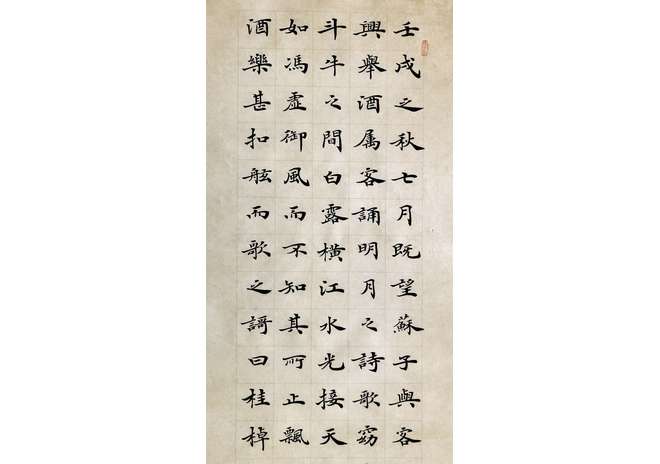 壬戌之秋七月既望蘇子與客
興舉酒属客誦明月之詩歌窈
斗牛之間白露橫江水光接天
如馮虛御風而不知其所止飄
酒樂甚扣舷而歌之謌曰桂棹